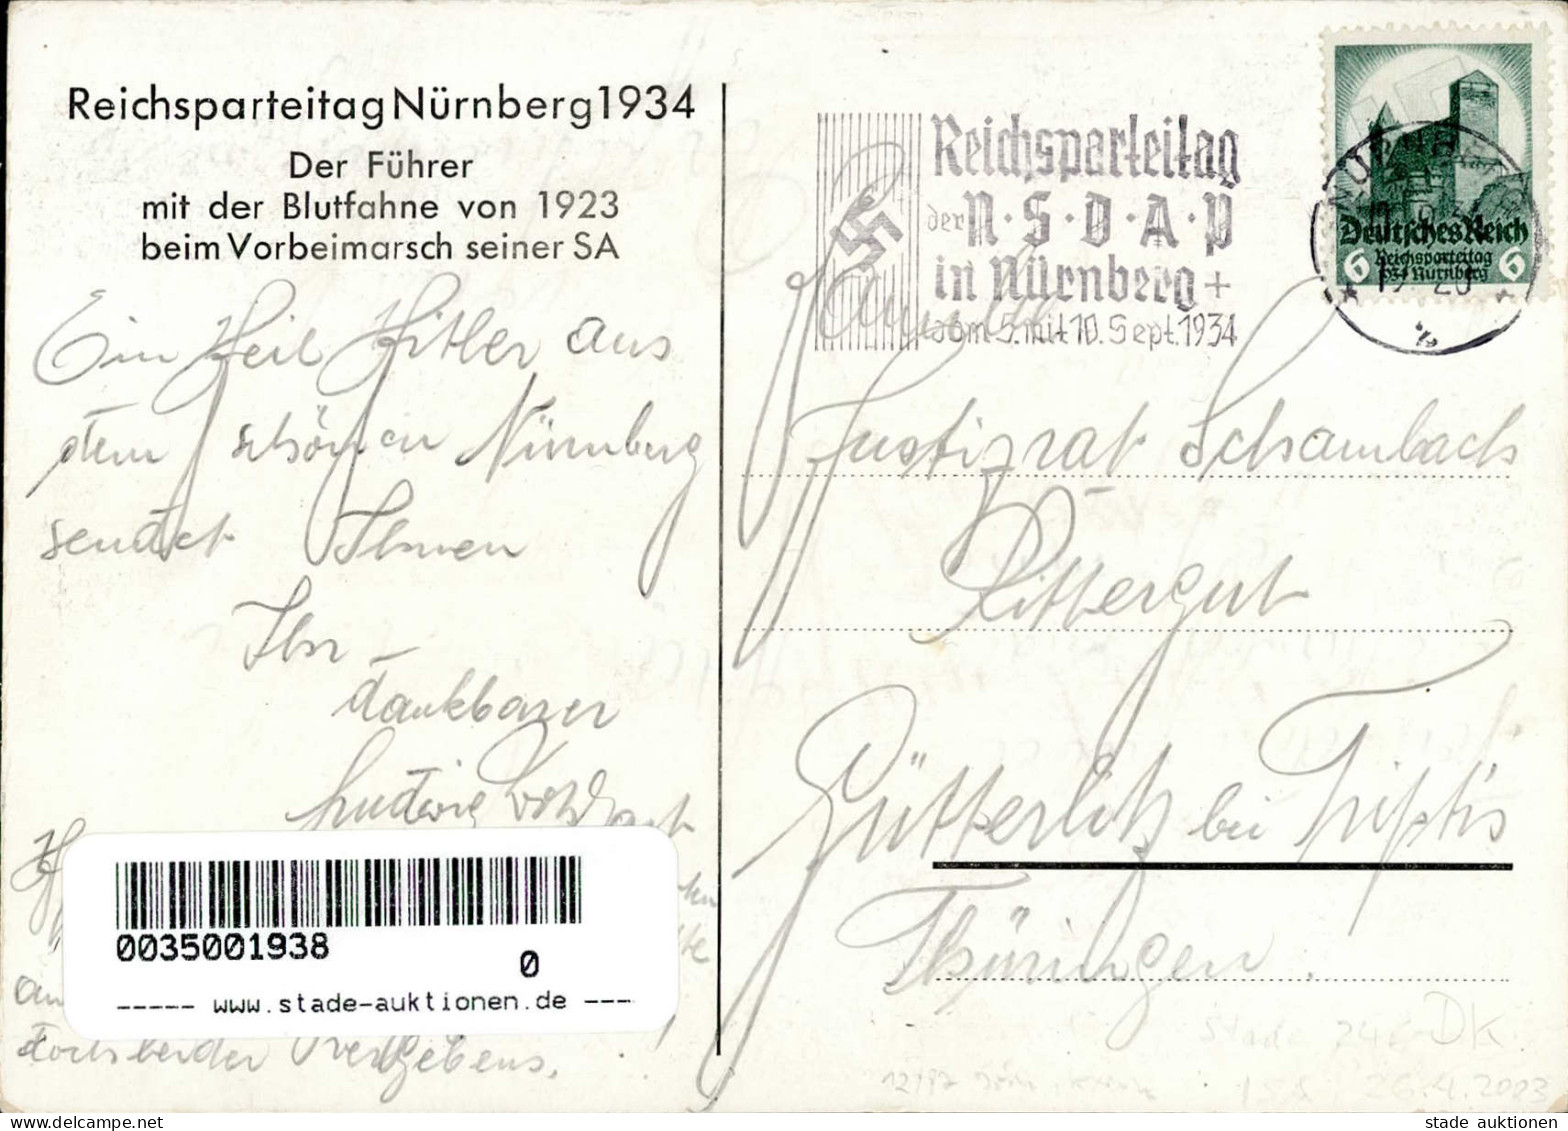 Reichsparteitag Nürnberg 1934
Der Führer
mit der Blutfahne von 1923
beim Vorbeimarsch seiner SA
Ein Heil Hitler aus
dem schönen Nürnberg
sendet Ihnen
Ihr
dankbarer
Ludwig
doch leider vergebens.
0035001938
0
----- www.stade-auktionen.de ---
Reichsparteitag
der N·S·D·A·P
in Nürnberg +
vom 5. mit 10. Sept. 1934
Deutsches Reich
6 Reichsparteitag 6
1934 Nürnberg
19-20
Justizrat Schambach
Rittergut
Gütterlitz bei Triptis
Thüringen.
Stade
DK
26.4.2003
stade auktionen